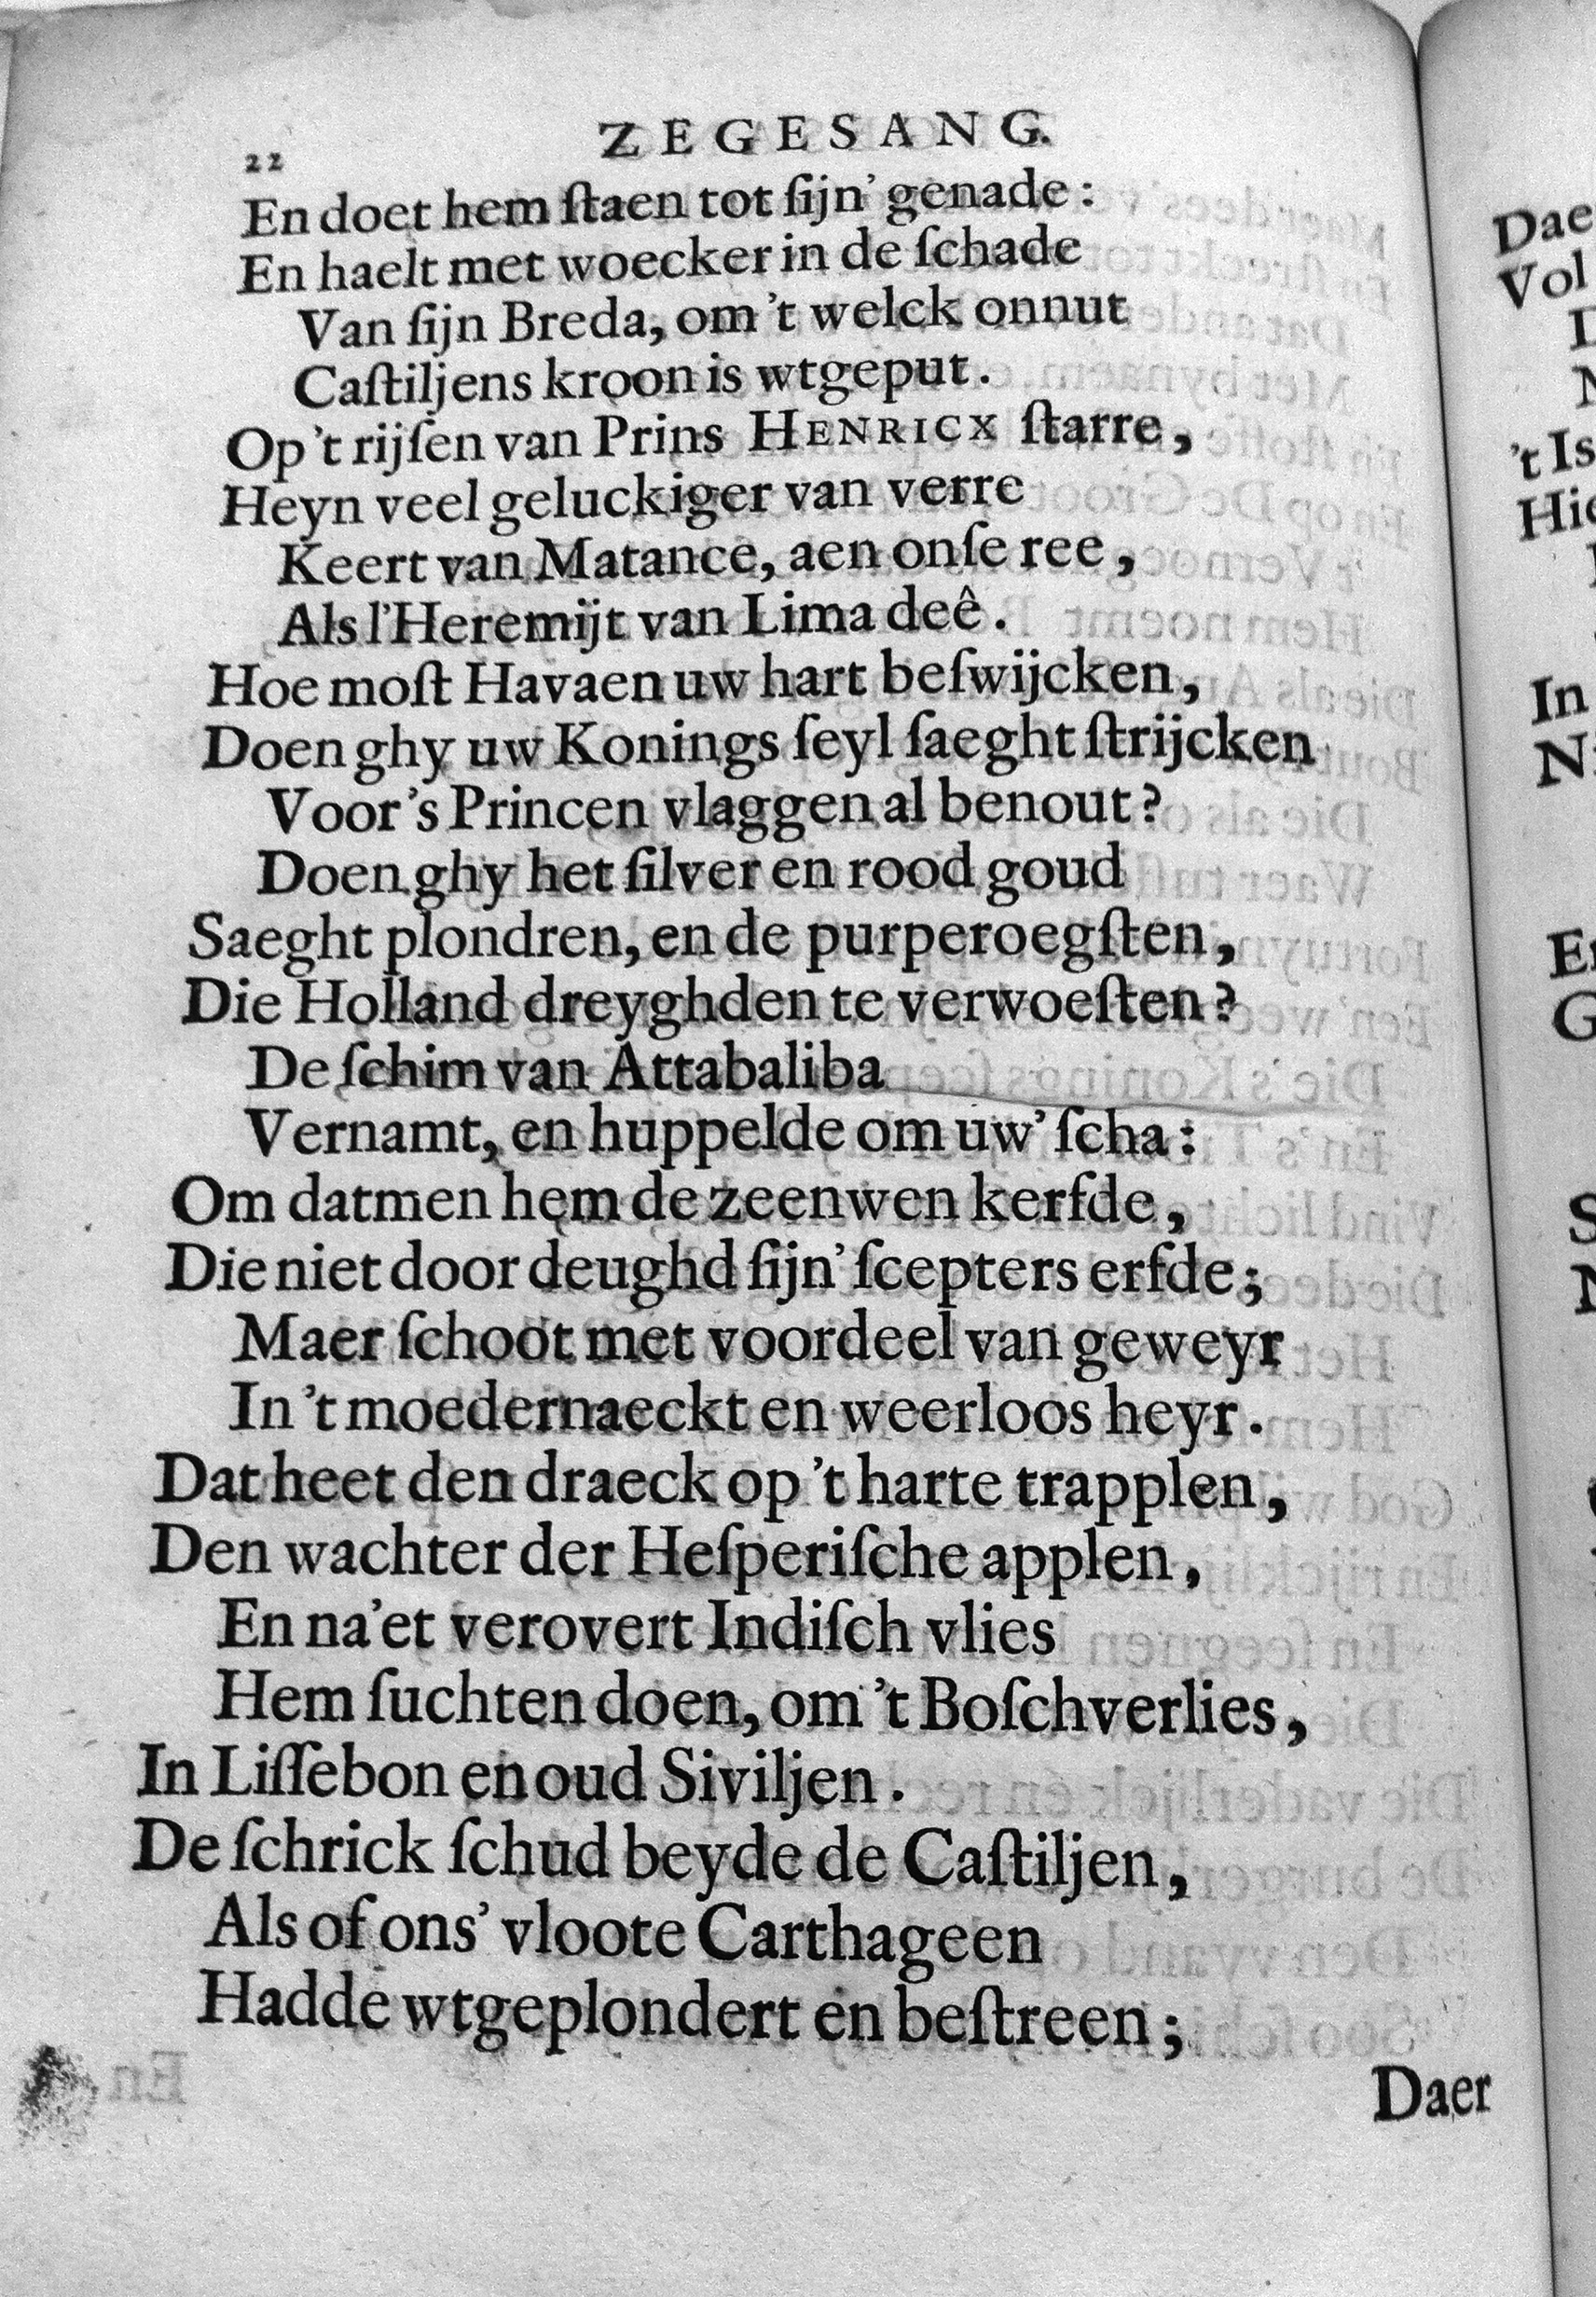 22 ZEGESANG.
En doet hem ſtaen tot ſijn' genade:
En haelt met woecker in de ſchade
Van ſijn Breda, om 't welck onnut
Caſtiljens kroon is wtgeput.
Op 't rijſen van Prins HENRICX ſtarre,
Heyn veel geluckiger van verre
Keert van Matance, aen onſe ree,
Als l'Heremijt van Lima deê.
Hoe moſt Havaen uw hart beſwijcken,
Doen ghy uw Konings ſeyl ſaeght ſtrijcken
Voor 's Princen vlaggen al benout?
Doen ghy het ſilver en rood goud
Saeght plondren, en de purperoegſten,
Die Holland dreyghden te verwoeſten?
De ſchim van Attabaliba
Vernamt, en huppelde om uw' ſcha:
Om datmen hem de zeenwen kerfde,
Die niet door deughd ſijn' ſcepters erfde;
Maer ſchoot met voordeel van geweyr
In 't moedernaeckt en weerloos heyr.
Dat heet den draeck op 't harte trapplen,
Den wachter der Heſperiſche applen,
En na'et verovert Indiſch vlies
Hem ſuchten doen, om 't Boſchverlies,
In Liſſebon en oud Siviljen.
De ſchrick ſchud beyde de Caſtiljen,
Als of ons' vloote Carthageen
Hadde wtgeplondert en beſtreen;
Daer
Dae
Vol
't Is
In